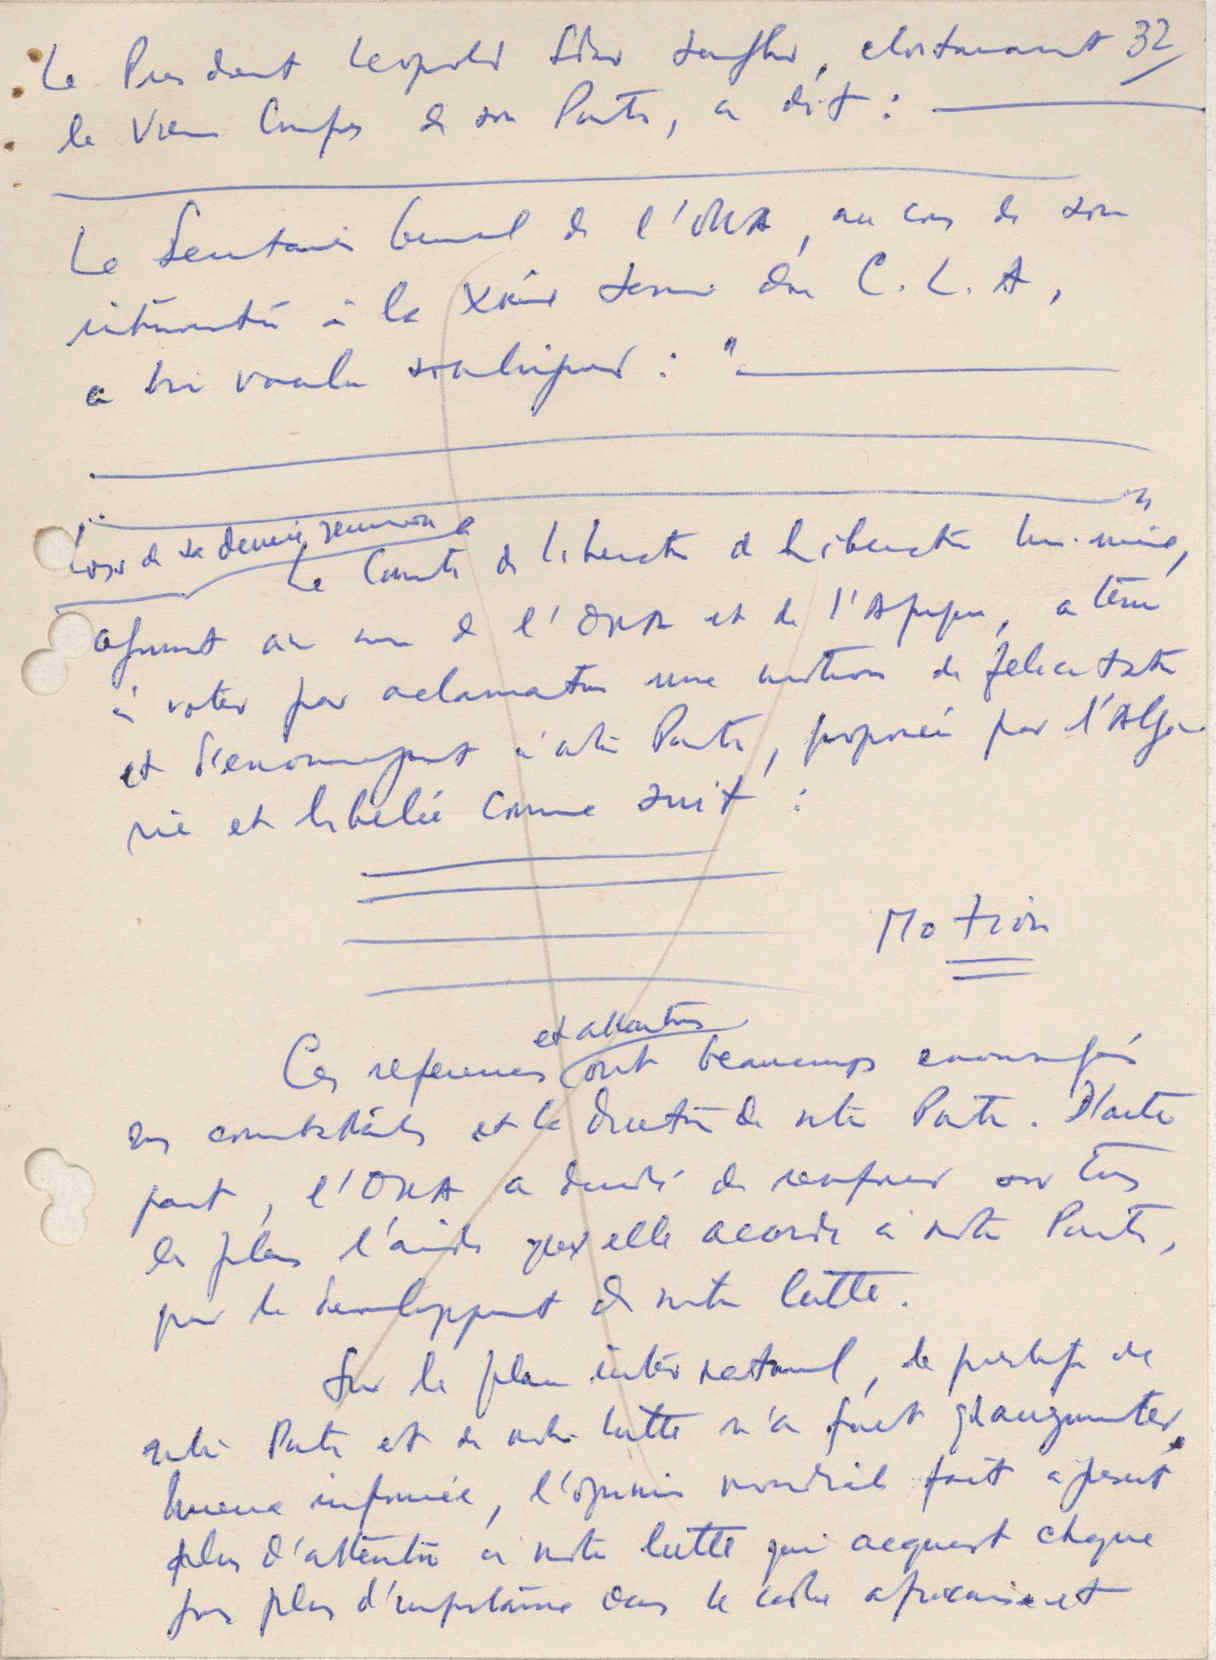 32
Le President Leopold Sédar Senghor, cloturant
le Vème Congrès de son Parti, a dit :
Le Secrétaire Général de l'OUA, au cours de son
intervention à la session du C.L.A,
a bien voulu souligner : "
"
Lors de sa dernière réunion
Le Comité de Libération lui-même,
agissant au nom de l'OUA et de l'Afrique, a tenu
à voter par aclamation une motion de félicitation
et d'encouragement à notre Parti, proposée par l'Algé-
rie et libelée comme suit :
Motion
et attentions
Ces references ont beaucoup encouragés
nos combattants et la direction de notre Parti. D'autre
part, l'OUA a decidé de renforcer sur tous
les plans l'aide qu'elle acorde à notre Parti,
pour le developpement de notre lutte.
Sur le plan international, le prestige de
notre Parti et de notre lutte n'a fait qu'augmenter.
Mieux informée, l'opinion mondiale fait à present
plus d'attention à notre lutte qui acquiert chaque
jour plus d'importance dans le cadre africain et